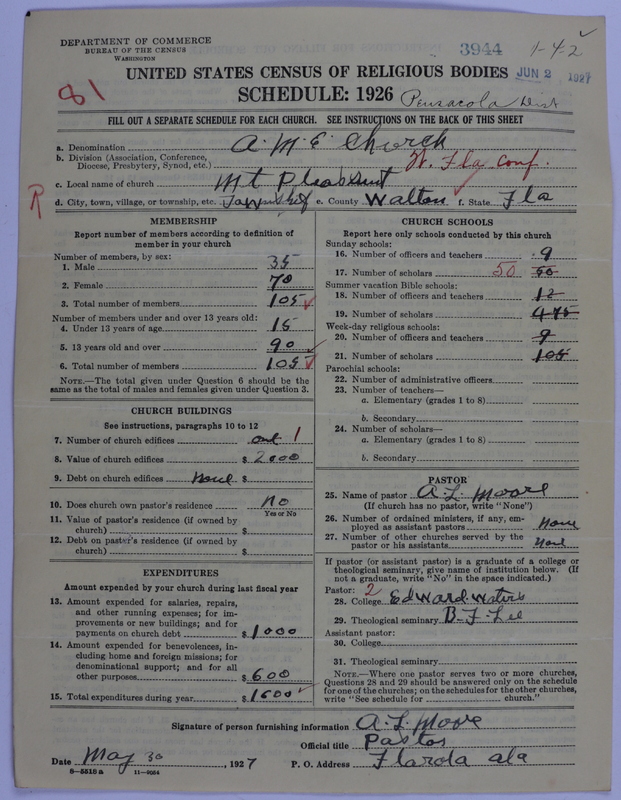 DEPARTMENT OF COMMERCE
BUREAU OF THE CENSUS
WASHINGTON
3944
1-4-2
UNITED STATES CENSUS OF RELIGIOUS BODIES
JUN 2 1927
81
SCHEDULE: 1926
Pensacola Dist
FILL OUT A SEPARATE SCHEDULE FOR EACH CHURCH. SEE INSTRUCTIONS ON THE BACK OF THIS SHEET
a. Denomination A. M. E. Church
b. Division (Association, Conference, Diocese, Presbytery, Synod, etc.) W. Fla Conf.
c. Local name of church Mt Pleasant
R
d. City, town, village, or township, etc. Township e. County Walton f. State Fla
MEMBERSHIP
Report number of members according to definition of member in your church
Number of members, by sex:
1. Male 35
2. Female 70
3. Total number of members 105
Number of members under and over 13 years old:
4. Under 13 years of age 15
5. 13 years old and over 90
6. Total number of members 105
NOTE.—The total given under Question 6 should be the same as the total of males and females given under Question 3.
CHURCH BUILDINGS
See instructions, paragraphs 10 to 12
7. Number of church edifices one 1
8. Value of church edifices $ 2000
9. Debt on church edifices None $
10. Does church own pastor's residence No
Yes or No
11. Value of pastor's residence (if owned by church) $
12. Debt on pastor's residence (if owned by church) $
EXPENDITURES
Amount expended by your church during last fiscal year
13. Amount expended for salaries, repairs, and other running expenses; for improvements or new buildings; and for payments on church debt $ 1000
14. Amount expended for benevolences, including home and foreign missions; for denominational support; and for all other purposes $ 600
15. Total expenditures during year $ 1600
CHURCH SCHOOLS
Report here only schools conducted by this church
Sunday schools:
16. Number of officers and teachers 9
17. Number of scholars 50 50
Summer vacation Bible schools:
18. Number of officers and teachers 12
19. Number of scholars 475
Week-day religious schools:
20. Number of officers and teachers 9
21. Number of scholars 105
Parochial schools:
22. Number of administrative officers
23. Number of teachers—
a. Elementary (grades 1 to 8)
b. Secondary
24. Number of scholars—
a. Elementary (grades 1 to 8)
b. Secondary
PASTOR
25. Name of pastor A. L. Moore
(If church has no pastor, write "None")
26. Number of ordained ministers, if any, employed as assistant pastors None
27. Number of other churches served by the pastor or his assistants None
If pastor (or assistant pastor) is a graduate of a college or theological seminary, give name of institution below. (If not a graduate, write "No" in the space indicated.)
Pastor: 2
28. College Edward Waters
29. Theological seminary B. F. Lee
Assistant pastor:
30. College
31. Theological seminary
NOTE.—Where one pastor serves two or more churches, Questions 28 and 29 should be answered only on the schedule for one of the churches; on the schedules for the other churches, write "See schedule for church."
Signature of person furnishing information A. L. Moore
Official title Pastor
Date May 30, 1927 P. O. Address Florala Ala
8-5518a 11-9054